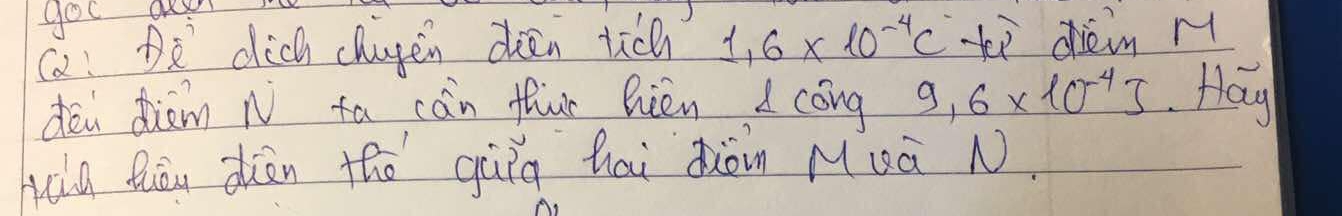 góc
C2: Để dịch chuyển điện tích 1,6 × 10⁻⁴C từ điểm M
đến điểm N ta cần thực hiện 1 công 9,6 × 10⁻⁴J. Hãy
tính hiệu điện thế giữa hai điểm M và N.